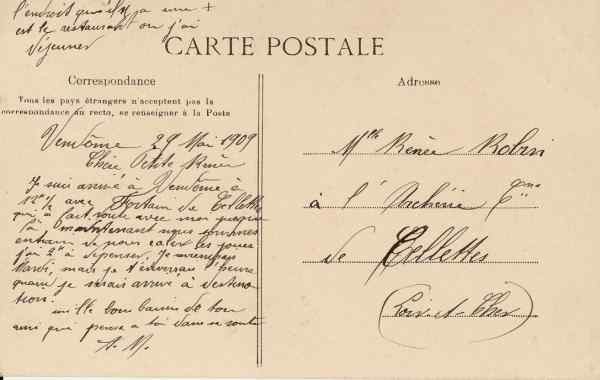 l'endroit qu'il y a une +
est le restaurant ou j'ai
déjeuner
CARTE POSTALE
Correspondance
Tous les pays étrangers n'acceptent pas la
correspondance au recto, se renseigner à la Poste
Vendôme 29 Mai 1909
Chère Petite Renée
Je suis arrivé à Vendôme à
12h½ avec de Cellettes
qui a fait route avec moi jusque
là maintenant nous sommes
entrain de nous caler les joues
j'ai 2h à dépenser. Je
Mardi, mais je t'écrirai l'heure
quand je serais arrivé à destina-
tion.
mille bons baisers de ton
ami qui pense a toi dans sa route
A. M.
Adresse
Mlle Renée Robin
à l' Archerie Cne
de Cellettes
(Loir-et-Cher)